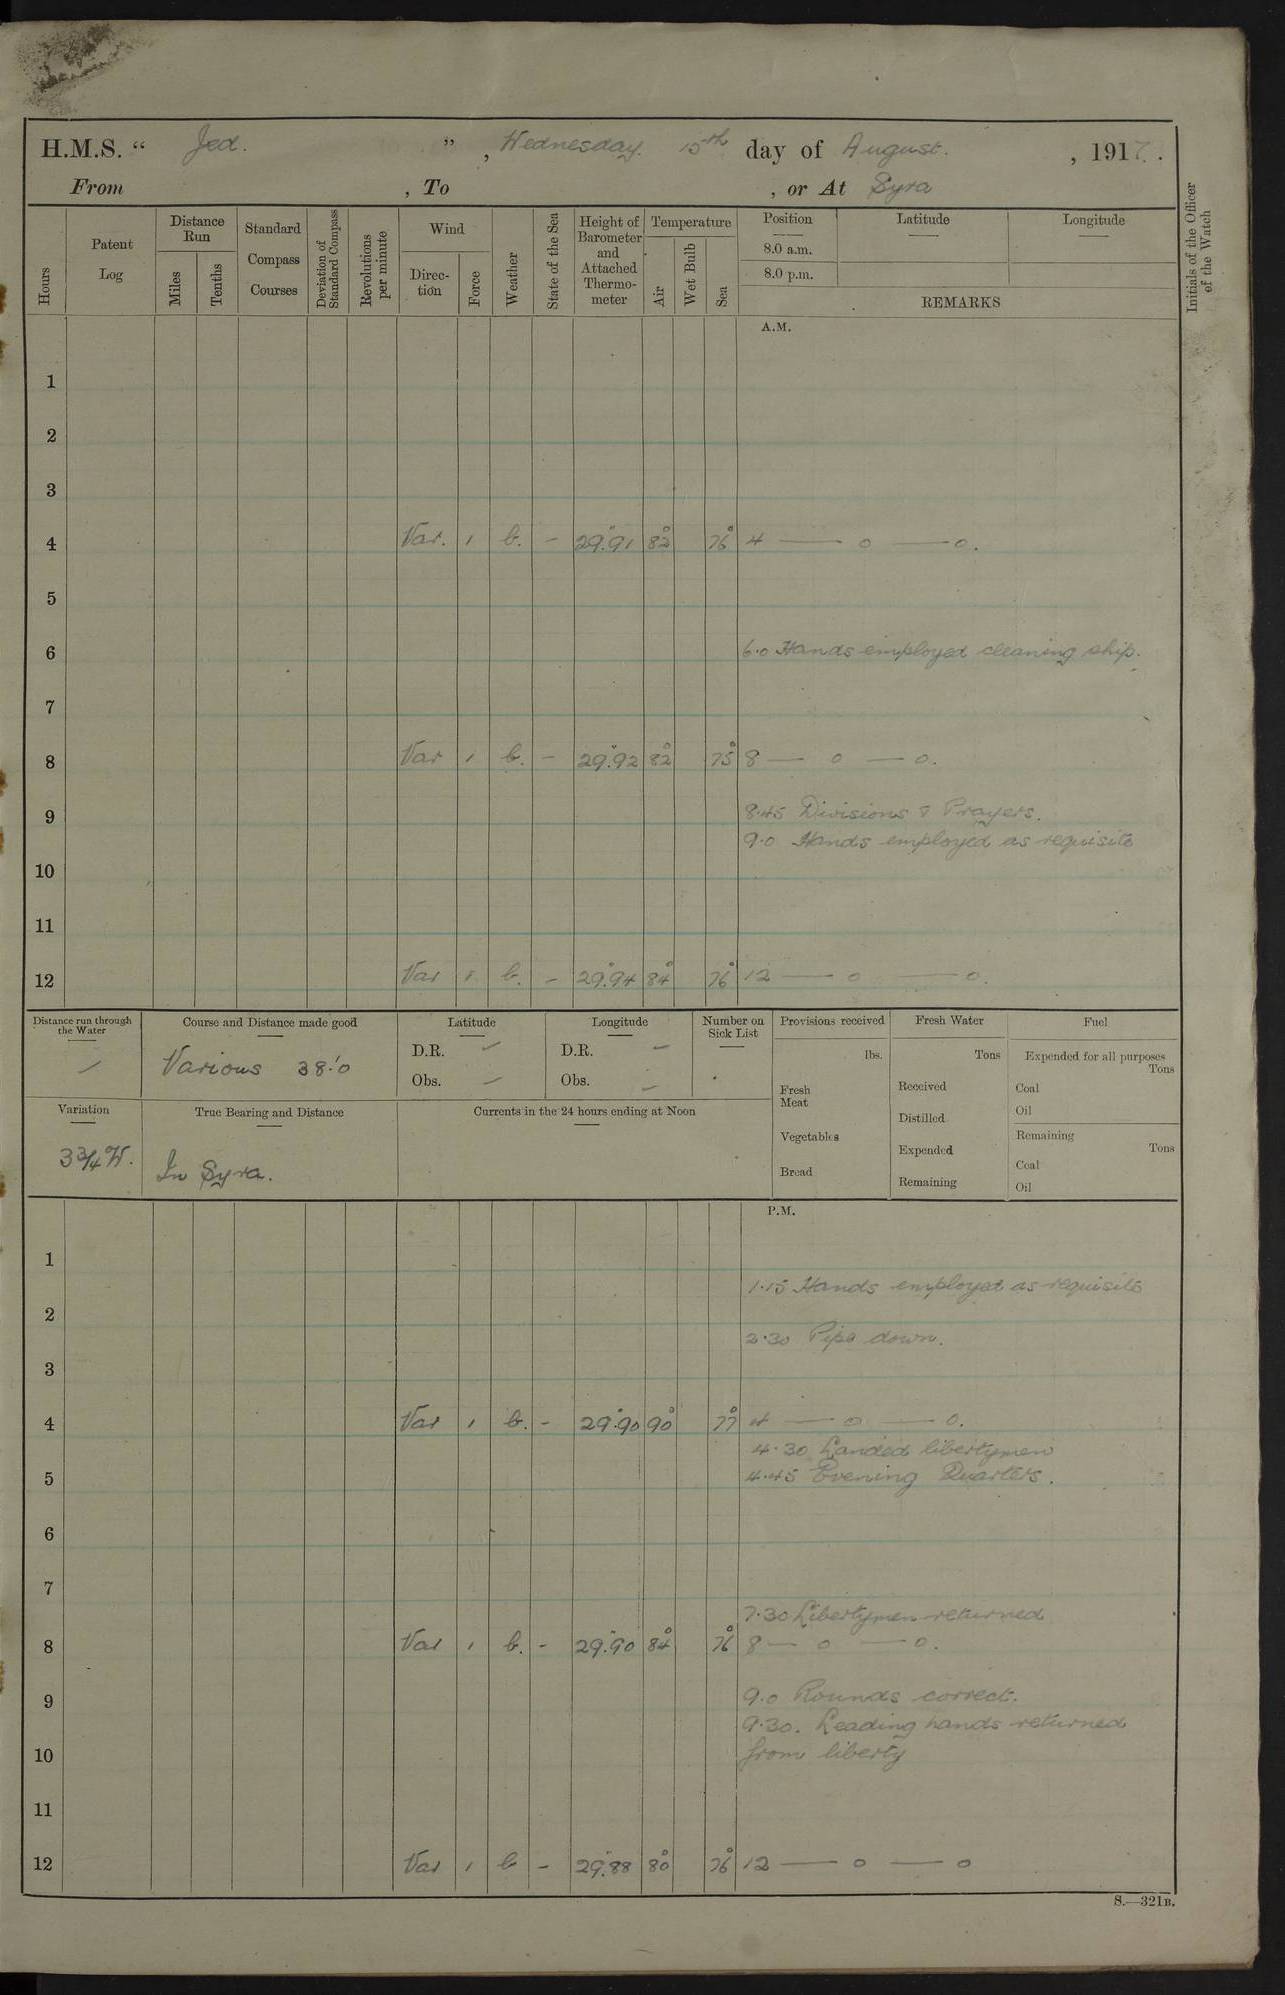 H.M.S. “ Jed. ”, Wednesday. 15th day of August. , 1917.
From , To , or At Syra
Hours
Patent Log
Distance Run
Miles
Tenths
Standard Compass Courses
Deviation of Standard Compass
Revolutions per minute
Wind
Direc-tion
Force
Weather
State of the Sea
Height of Barometer and Attached Thermo-meter
Temperature
Air
Wet Bulb
Sea
Position
8.0 a.m.
8.0 p.m.
Latitude
Longitude
REMARKS
Initials of the Officer of the Watch
A.M.
1
2
3
4 Var. 1 b. - 29.91 82° 76° 4 — o — o.
5
6 6.0 Hands employed cleaning ship.
7
8 Var 1 b. - 29.92 82° 75° 8 — o — o.
9 8.45 Divisions & Prayers.
9.0 Hands employed as requisite
10
11
12 Var 1 b. - 29.94 84° 76° 12 — o — o.
Distance run through the Water
Course and Distance made good
Various 38'.0
Latitude
D.R. –
Obs. –
Longitude
D.R. –
Obs. –
Number on Sick List
Provisions received
lbs.
Fresh Meat
Vegetables
Bread
Fresh Water
Tons
Received
Distilled
Expended
Remaining
Fuel
Expended for all purposes
Tons
Coal
Oil
Remaining
Tons
Coal
Oil
Variation
3¾ W.
True Bearing and Distance
In Syra.
Currents in the 24 hours ending at Noon
P.M.
1
1.15 Hands employed as requisite
2
2.30 Pipe down.
3
4 Var 1 b. - 29.90 90° 77° 4 — o — o.
4.30 Landed libertymen
5 4.45 Evening Quarters.
6
7
7.30 Libertymen returned
8 Var 1 b. - 29.90 84° 76° 8 — o — o.
9 9.0 Rounds correct.
9.30. Leading hands returned
10 from liberty
11
12 Var 1 b - 29.88 80° 76° 12 — o — o
S.—321B.